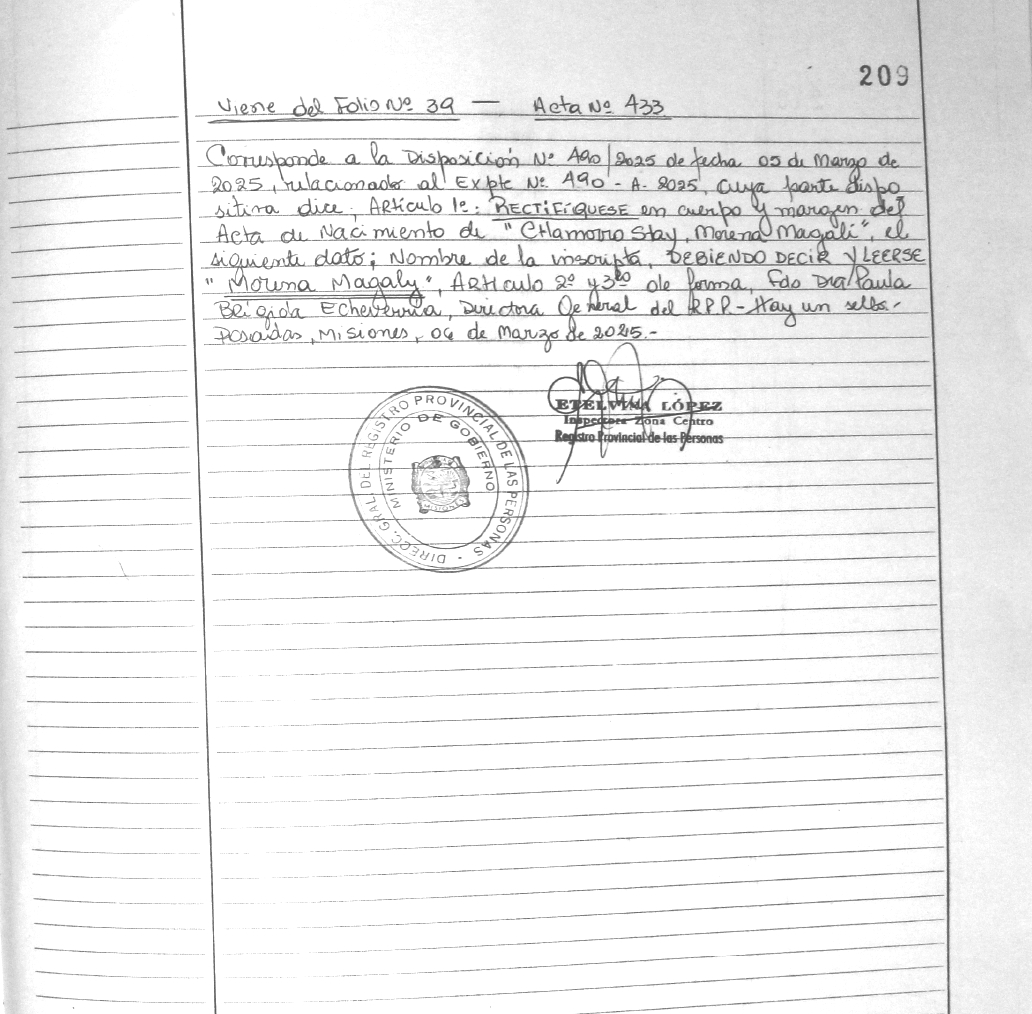 209
Viene del Folio Nº 39 — Acta Nº 433
Corresponde a la Disposición Nº 490/2025 de fecha 05 de Marzo de
2025, relacionados al Expte Nº 490-A-2025, cuya parte dispo
sitiva dice; Artículo 1º: RECTIFÍQUESE en cuerpo y margen del
Acta de Nacimiento de "CHamorro Stay, Morena Magali", el
siguiente dato; Nombre de la inscripta, DEBIENDO DECIR Y LEERSE
"Morena Magaly", Artículo 2º y 3º de forma, Fdo Dra Paula
Brígida Echeverria, Directora General del R.P.P.-Hay un sello.-
Posadas, Misiones, 06 de Marzo de 2025.-
ETELVINA LÓPEZ
Inspectora Zona Centro
Registro Provincial de las Personas
DIRECC. GRAL. DEL REGISTRO PROVINCIAL DE LAS PERSONAS -
MINISTERIO DE GOBIERNO